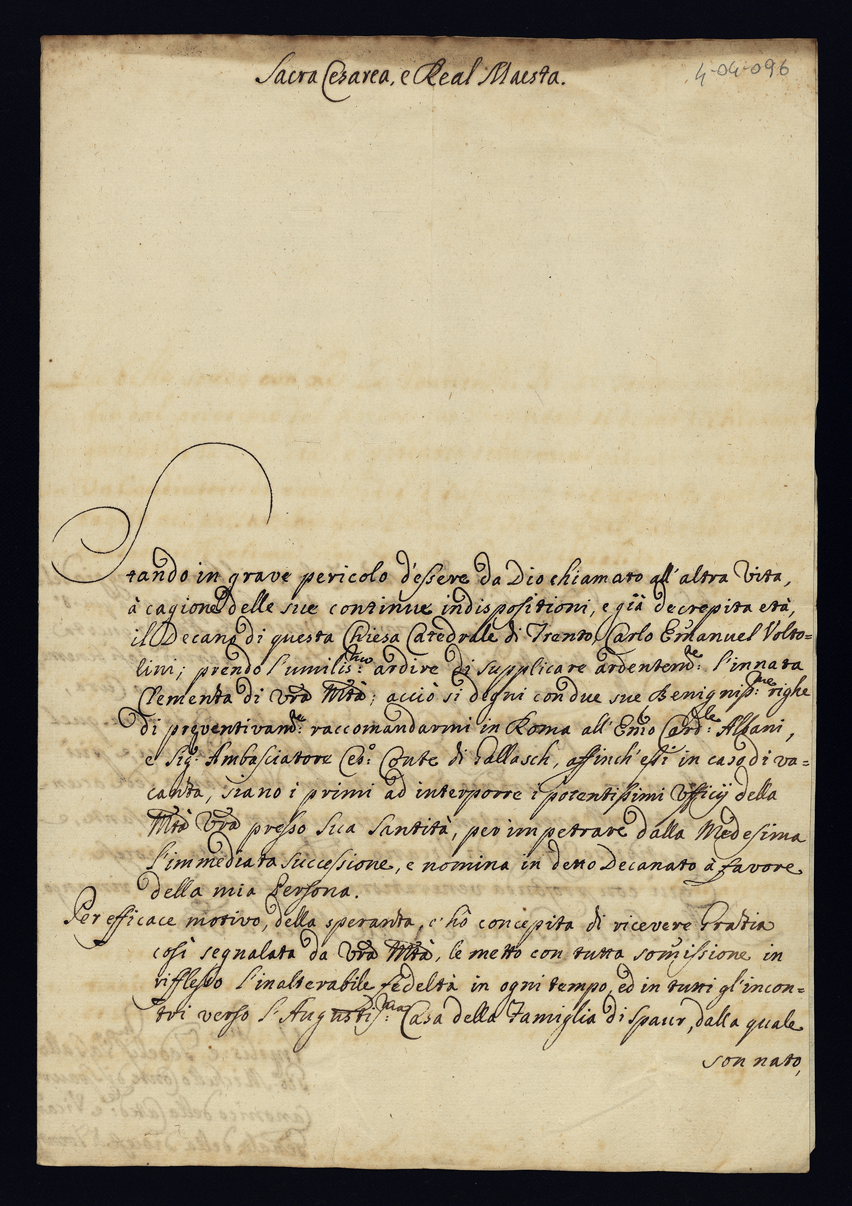 Sacra Cesarea, e Real Maesta.
4-04-096
Stando in grave pericolo d'essere da Dio chiamato all'altra Vita,
à cagione delle sue continue indispositioni, e già decrepita età,
il Decano di questa Chiesa Catedrale di Trento Carlo Emanuel Volto=
lini; prendo l'umilis:mo ardire di supplicare ardentem:te l'innata
Clemenza di Vra Mtà; acciò si degni con due sue Benignis:me righe
di preventivam:te raccomandarmi in Roma all'Emo Card:le Albani,
e Sig:r Ambasciatore Ces:o Conte di Gallasch, affinch'essi in caso di va=
canza, siano i primi ad interporre i potentissimi Ufficij della
Mtà Vra presso Sua Santità, per impetrare dalla Medesima
l'immediata successione, e nomina in detto Decanato à favore
della mia Persona.
Per efficace motivo, della speranza, c'hò concepita di ricevere Gratia
così segnalata da Vra Mtà, le metto con tutta somissione in
riflesso l'inalterabile fedeltà in ogni tempo, ed in tutti gl'incon=
tri verso l'Augustis:ma Casa della Famiglia di Spaur, dalla quale
son nato,